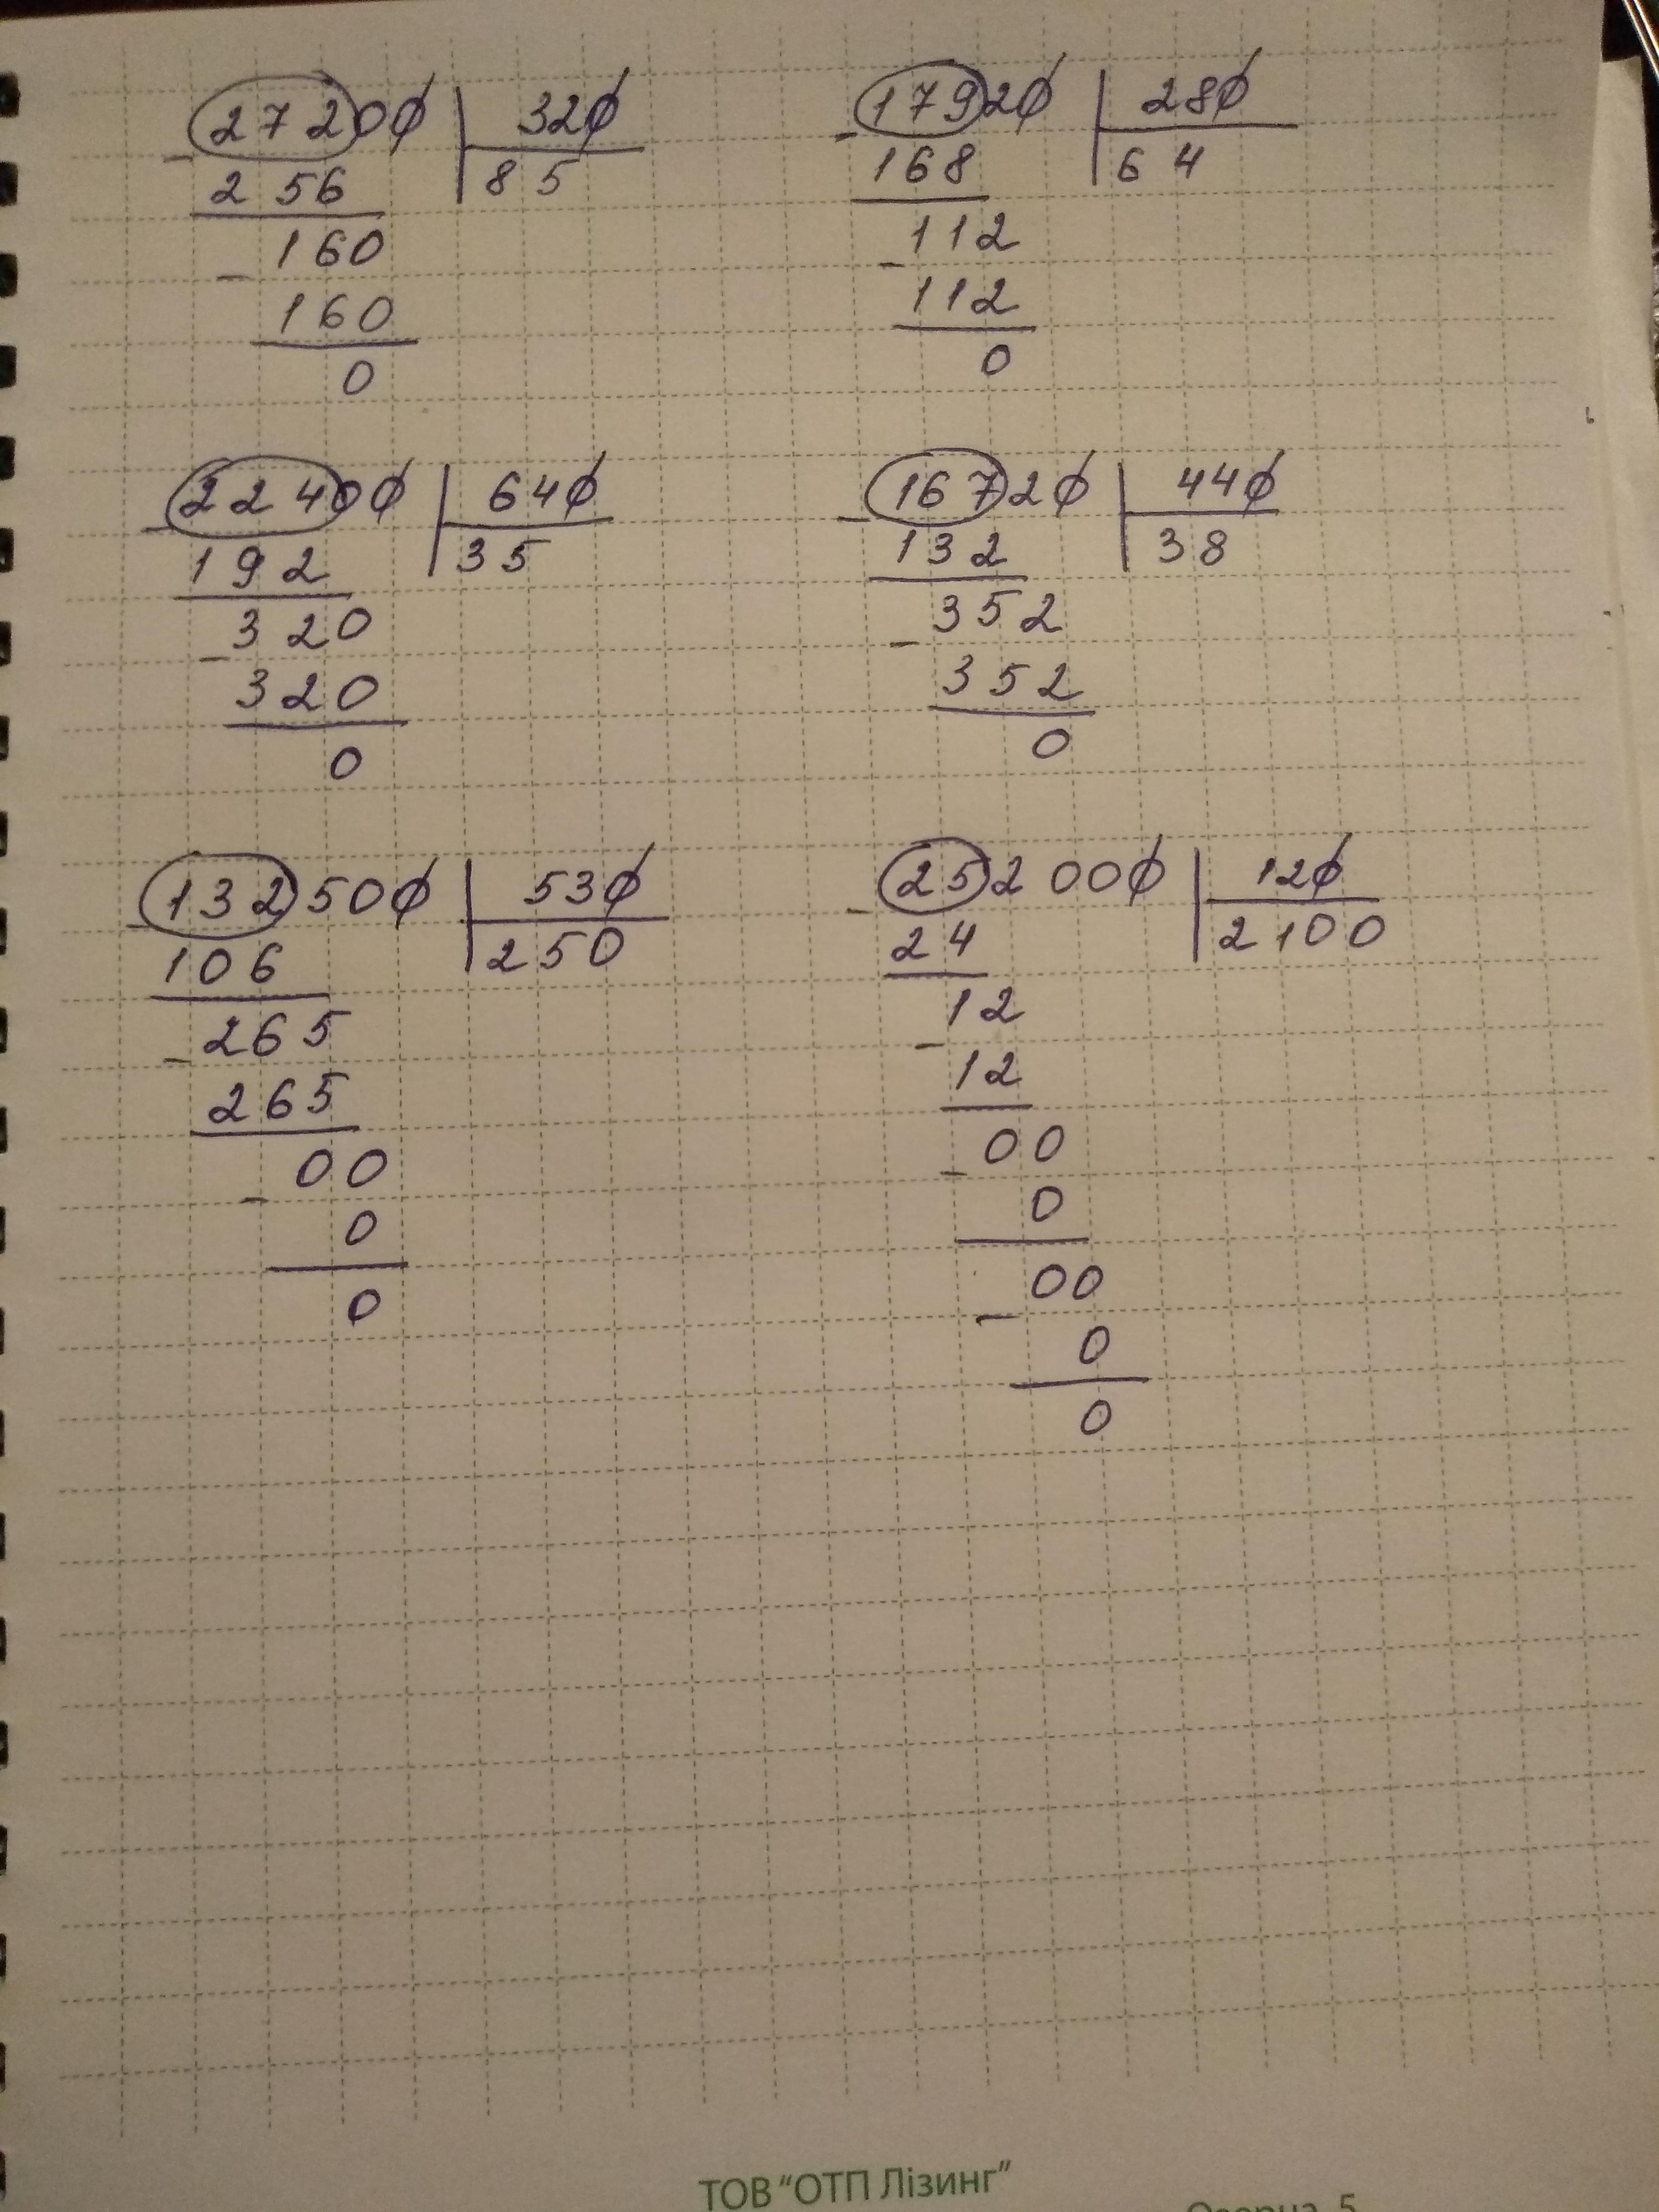 27200 320
256 85
160
160
0
17920 280
168 64
112
112
0
22400 640
192 35
320
320
0
16720 440
132 38
352
352
0
132500 530
106 250
265
265
00
0
0
252000 120
24 2100
12
12
00
0
00
0
0
ТОВ "ОТП Лізинг"